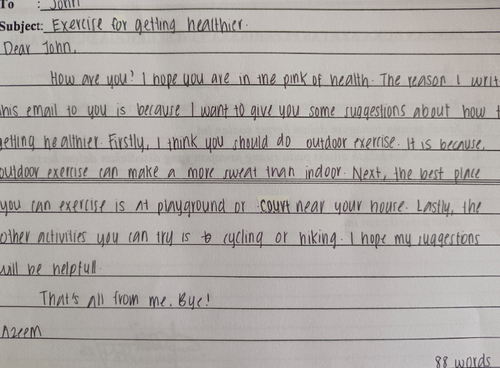 To : John
Subject: Exercise for getting healthier.
Dear John,
How are you? I hope you are in the pink of health. The reason I writ
his email to you is because I want to give you some suggestions about how t
getting healthier. Firstly, I think you should do outdoor exercise. It is because,
outdoor exercise can make a more sweat than indoor. Next, the best place
you can exercise is at playground or court near your house. Lastly, the
other activities you can try is to cycling or hiking. I hope my suggestions
will be helpfull
That's all from me. Bye!
Azeem
88 words